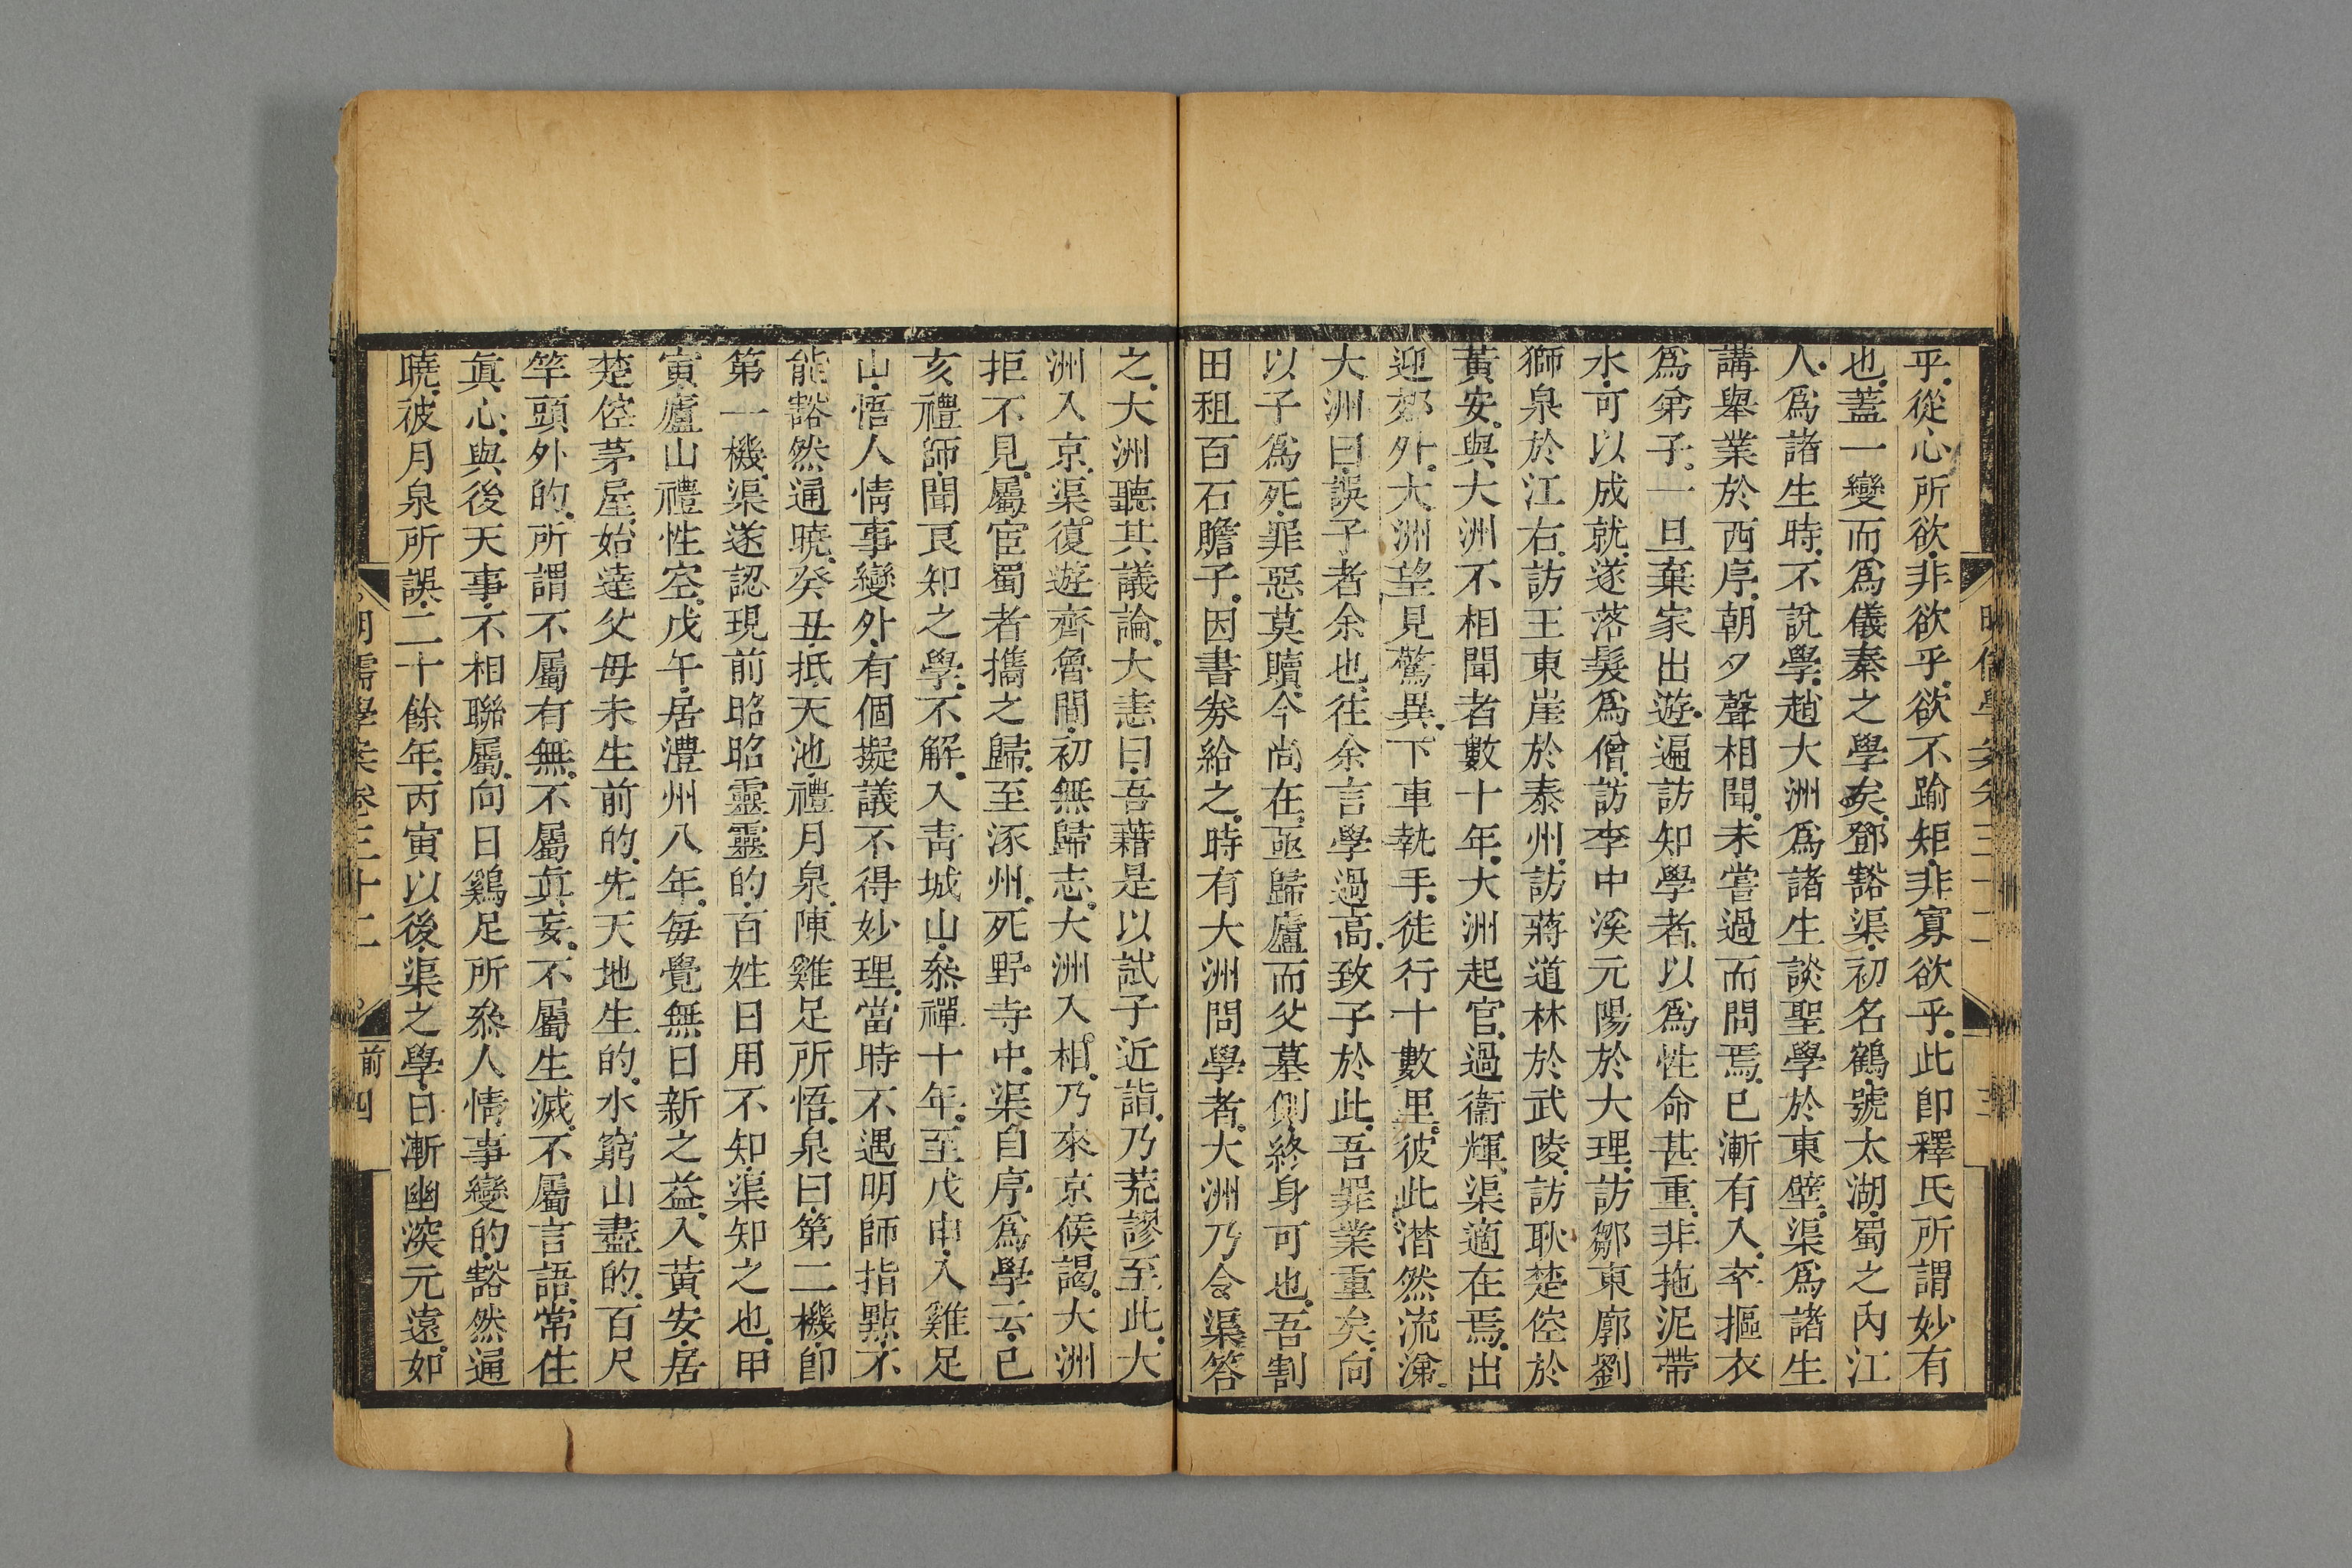 乎從心所欲非欲乎欲不踰矩非寡欲乎此卽釋氏所謂妙有
也蓋一變而爲儀秦之學矣鄧豁渠初名鶴號太湖蜀之內江
人爲諸生時不說學趙大洲爲諸生談聖學於東壁渠爲諸生
講舉業於西序朝夕聲相聞未嘗過而問焉已漸有入卒摳衣
爲弟子一旦棄家出遊遍訪知學者以爲性命甚重非拖泥帶
水可以成就遂落髮爲僧訪李中溪元陽於大理訪鄒東廓劉
獅泉於江右訪王東崖於泰州訪蔣道林於武陵訪耿楚倥於
黃安與大洲不相聞者數十年大洲起官過衞輝渠適在焉出
迎郊外大洲望見驚異下車執手徒行十數里彼此潸然流涕
大洲曰誤子者余也往余言學過高致子於此吾罪業重矣向
以子爲死罪惡莫贖今尚在亟歸廬而父墓側終身可也吾割
田租百石贍子因書劵給之時有大洲問學者大洲乃令渠答
之大洲聽其議論大恚曰吾藉是以試子近詣乃荒謬至此大
洲入京渠復遊齊魯間初無歸志大洲入相乃來京候謁大洲
拒不見屬宦蜀者攜之歸至涿州死野寺中渠自序爲學云已
亥禮師聞良知之學不解入靑城山叅禪十年至戊申入雞足
山悟人情事變外有個擬議不得妙理當時不遇明師指點不
能豁然通曉癸丑抵天池禮月泉陳雞足所悟泉曰第二機卽
第一機渠遂認現前昭昭靈靈的百姓日用不知渠知之也甲
寅廬山禮性空戊午居澧州八年每覺無日新之益入黃安居
楚倥茅屋始達父母未生前的先天地生的水窮山盡的百尺
竿頭外的所謂不屬有無不屬眞妄不屬生滅不屬言語常住
眞心與後天事不相聯屬向日鷄足所叅人情事變的豁然通
曉彼月泉所誤二十餘年丙寅以後渠之學日漸幽深元遠如
明儒學案卷三十二 前四